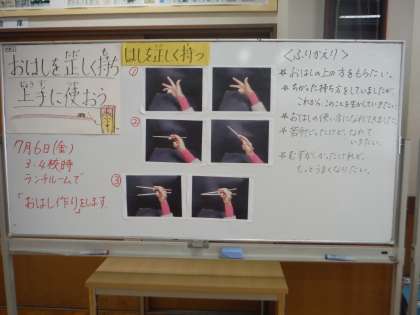 おはしを正しく持ち
上手に使おう
7月6日(金)
3・4校時
ランチルームで
「おはし作り」をします。
はしを正しく持つ
①
②
③
<ふりかえり>
＊おはしの上の方をもちたい。
＊ちがった持ち方をしていましたが、
これから、このことを生かしていきたい。
＊おはしの使い方になれてきました。
＊苦労だったけど、なれて
いきたい。
＊むずかしかったけれど、
もっとうまくなりたい。